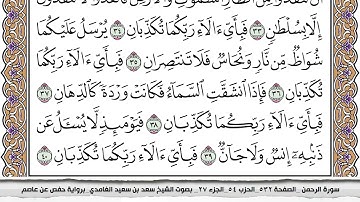 أَن تَنفُذُوا۟ مِنْ أَقْطَارِ ٱلسَّمَٰوَٰتِ وَٱلْأَرْضِ فَٱنفُذُوا۟ لَا تَنفُذُونَ
إِلَّا بِسُلْطَٰنٍ ٣٣ فَبِأَىِّ ءَالَآءِ رَبِّكُمَا تُكَذِّبَانِ ٣٤ يُرْسَلُ عَلَيْكُمَا
شُوَاظٌ مِّن نَّارٍ وَنُحَاسٌ فَلَا تَنتَصِرَانِ ٣٥ فَبِأَىِّ ءَالَآءِ رَبِّكُمَا
تُكَذِّبَانِ ٣٦ فَإِذَا ٱنشَقَّتِ ٱلسَّمَآءُ فَكَانَتْ وَرْدَةً كَٱلدِّهَانِ ٣٧
فَبِأَىِّ ءَالَآءِ رَبِّكُمَا تُكَذِّبَانِ ٣٨ فَيَوْمَئِذٍ لَّا يُسْـَٔلُ عَن
ذَنۢبِهِۦٓ إِنسٌ وَلَا جَآنٌّ ٣٩ فَبِأَىِّ ءَالَآءِ رَبِّكُمَا تُكَذِّبَانِ ٤٠
سورة الرحمن _الصفحة ٥٣٢_الحزب ٥٤ _الجزء ٢٧_ بصوت الشيخ سعد بن سعيد الغامدي_ برواية حفص عن عاصم